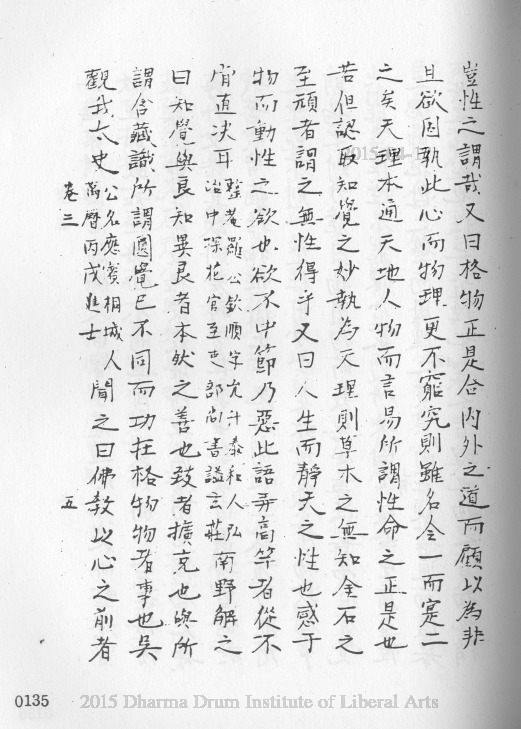 豈性之謂哉又曰格物正是合內外之道而顧以為非
且欲固執此心而物理更不窮究則雖名合一而寔二
之矣天理本通天地人物而言易所謂性命之正是也
若但認取知覺之妙執為天理則草木之無知金石之
至頑者謂之無性得乎又曰人生而靜天之性也感于
物而動性之欲也欲不中節乃惡此語弄高竿者從不
肯直决耳 整菴羅公欽順字允升泰和人弘
治中探花官至吏部尚書謚文莊 南野解之
曰知覺與良知異良者本然之善也致者擴充也與所
謂含藏識所謂圓覺已不同而功在格物物者事也吳
觀我太史 公名應賓桐城人
萬曆丙戌進士 聞之曰佛教以心之前者
卷三
五
0135
2015 Dharma Drum Institute of Liberal Arts